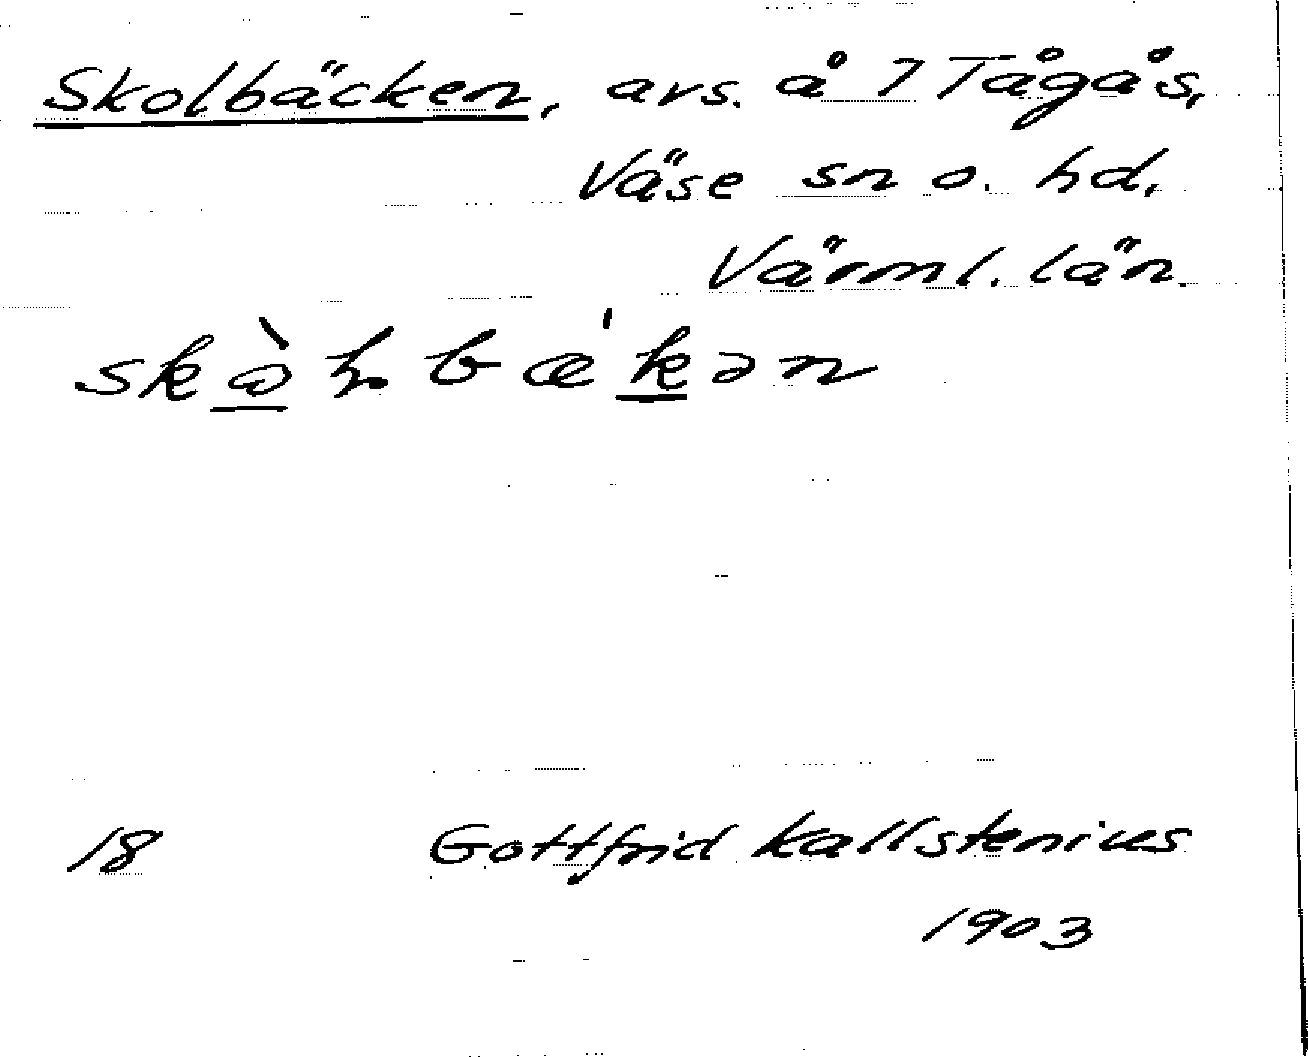 Skolbäcken, avs. å 7 Tågås,
Väse sn o. hd,
Värml. län.
18
Gottfrid Kallstenius
1903